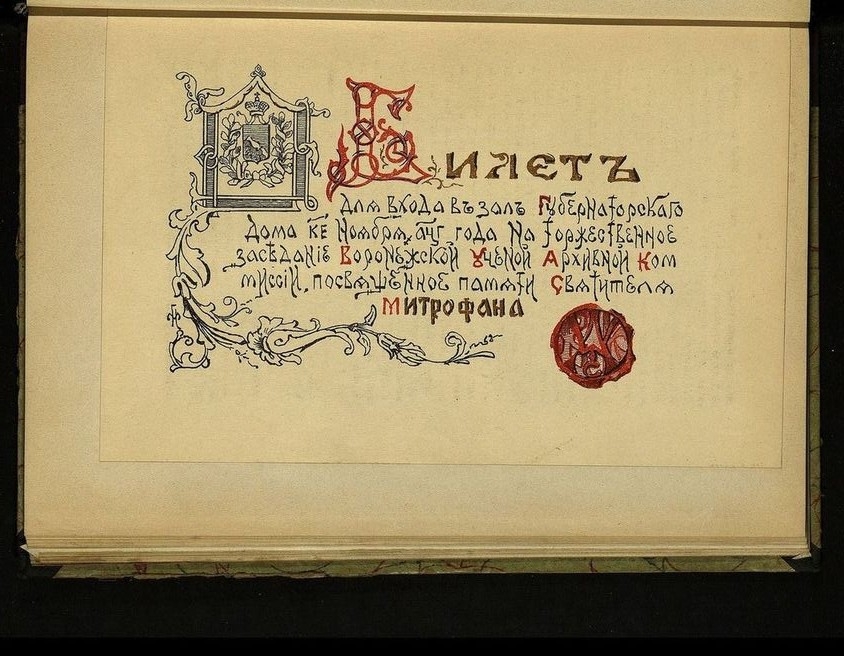 Билетъ
для входа въ залъ Губернаторскаго
дома к҃е Ноября, ацг года на торжественное
засѣданіе Воронежской Ученой Архивной Ком
миссіи, посвященное памяти Святителя
Митрофана